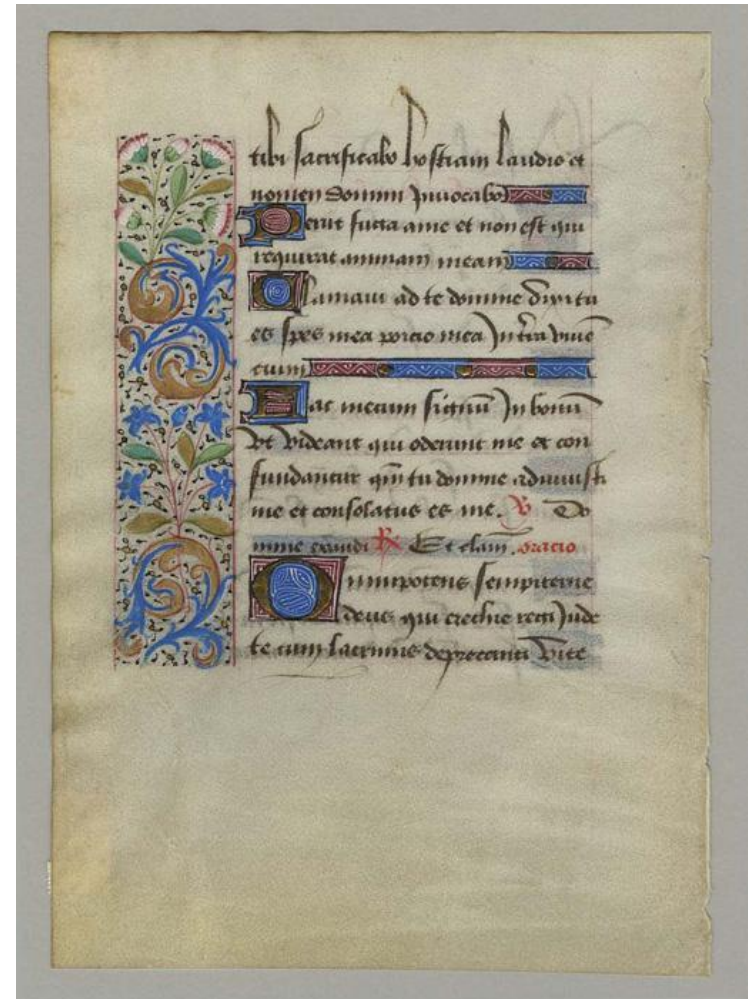 tibi sacrificabo hostiam laudis et
nomen domini Jnuocabo
Perut fucta a me et non est qui
requirat animam meam
Clamaui ad te domine dixi tu
es spes mea porcio mea Jn tr̄a viuē
cium
Fac mecum signū Jn bonū
vt videant qui oderunt me et con
fundantur qm̄ tu domine adiuuisti
me et consolatus es me. ℣ Do
mine exaudi ℟ Et clam̄. oracio
Omnipotens sempiterne
deus qui
te cum lacrimis deprecanti vite